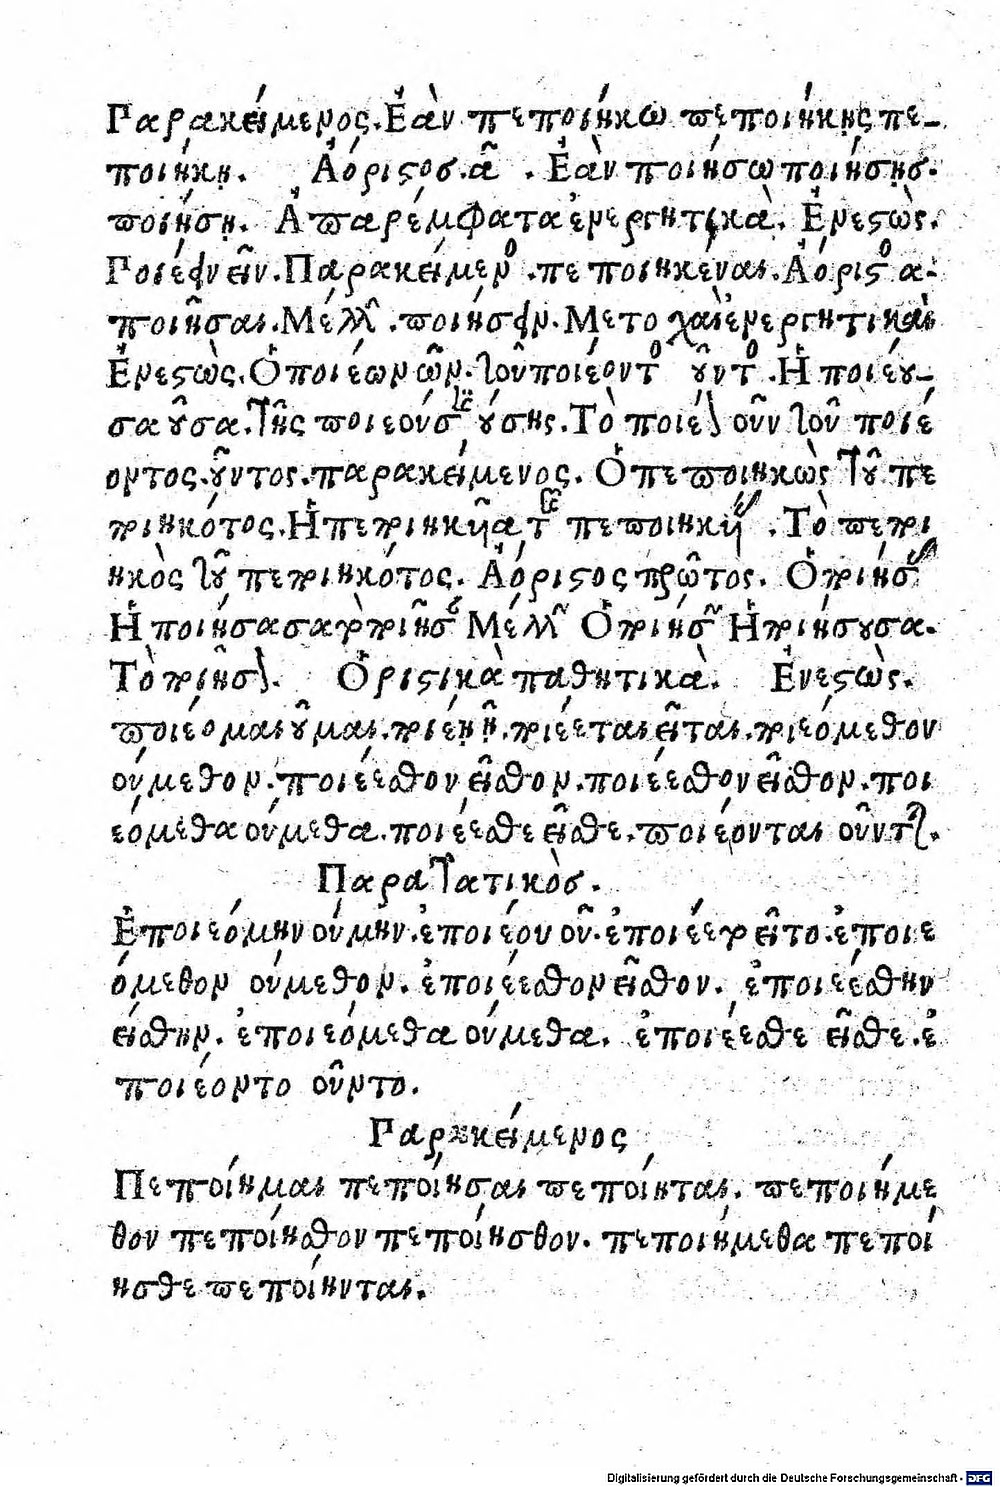 Παρακείμενος. Ἐὰν πεποιήκω πεποιήκῃς πε-
ποιήκῃ. Ἀόριστος.ᾶ . Ἐὰν ποιήσω ποιήσῃς.
ποιήσῃ. Ἀπαρέμφατα ἐνεργητικὰ. Ἐνεστὼς.
Ποιέειν εῖν. Παρακείμεν⁰ .πεποιηκέναι. Ἀόριστ⁰ α.
ποιῆσαι. Μέλλ .ποιήσειν. Μετοχαὶ ἐνεργητικαὶ
Ἐνεστὼς. Ὁ ποιέων ῶν. τοῦ ποιέοντ⁰ οῦντ⁰ .Ἡ ποιέου-
σα οῦσα. Τῆς ποιεούσης ούσης. Τὸ ποιέον οῦν τοῦ ποιέ
οντος. οῦντος. παρακείμενος. Ὁ πεποιηκὼς τοῦ πε
ποιηκότος. Ἡ πεποιηκῆα τῆς πεποιηκῄ . Τὸ πεποι
ηκὸς τοῦ πεποιηκότος. Ἀόριστος πρῶτος. Ὁ ποιήσ
Ἡ ποιήσασα τὸ ποιῆσ Μέλλ Ὁ ποιήσ Ἡ ποιήσουσα.
Τὸ ποιῆσον. Ὁριστικὰ παθητικὰ. Ἐνεστὼς.
ποιέομαι οῦμαι. ποιέῃ ῇ. ποιέεται εῖται. ποιεόμεθον
ούμεθον. ποιέεσθον εῖσθον. ποιέεσθον εῖσθον. ποι
εόμεθα ούμεθα. ποιέεσθε εῖσθε. ποιέονται οῦνται.
Παρατατικὸς.
Ἐποιεόμην ούμην. ἐποιέου οῦ. ἐποιέετο εῖτο. ἐποιε
όμεθον ούμεθον. ἐποιέεσθον εῖσθον. ἐποιεέσθην
είσθην. ἐποιεόμεθα ούμεθα. ἐποιέεσθε εῖσθε. ἐ
ποιέοντο οῦντο.
Παρακείμενος
Πεποίημαι πεποίησαι πεποίηται. πεποιήμε
θον πεποίησθον πεποίησθον. πεποιήμεθα πεποί
ησθε πεποίηνται.
Digitalisierung gefördert durch die Deutsche Forschungsgemeinschaft - DFG